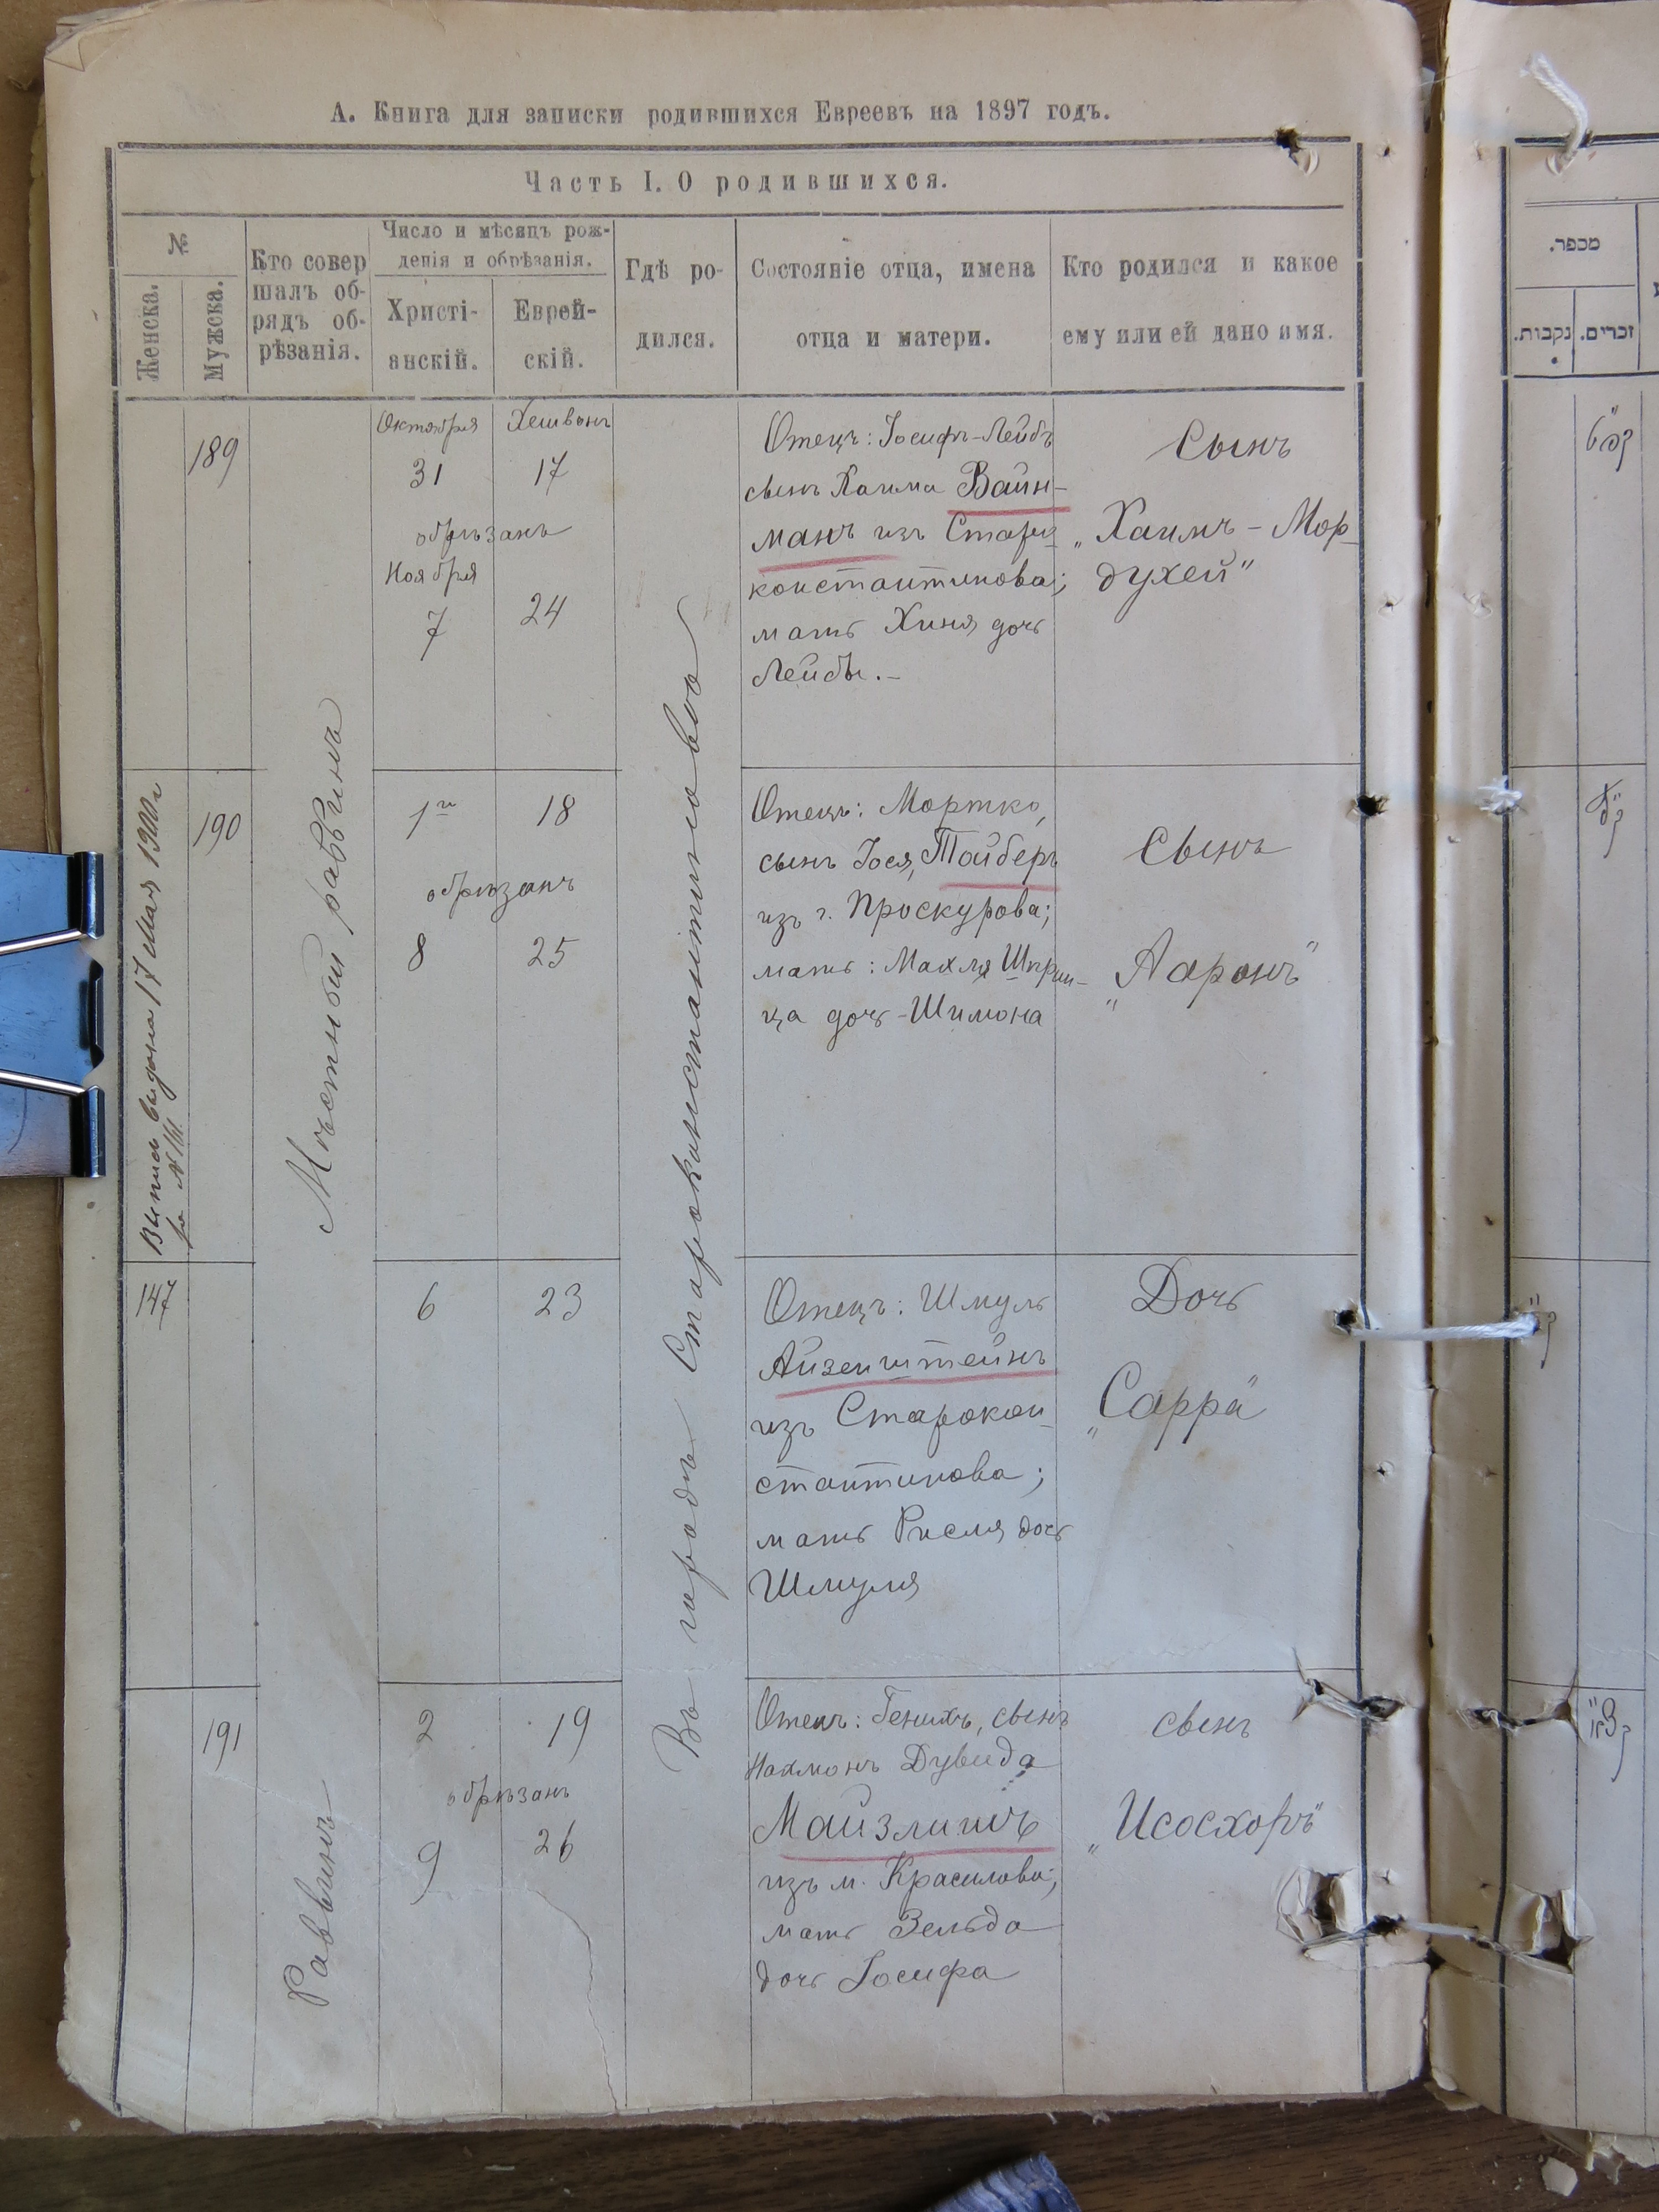 А. Книга для записки родившихся Евреевъ на 1897 годъ.
Часть I. О родившихся.
№
Женска.
Мужска.
Кто совер
шалъ об-
рядъ об-
рѣзанія.
Число и мѣсяцъ рож-
денія и обрѣзанія.
Христі-
анскій.
Еврей-
скій.
Гдѣ ро-
дился.
Состояніе отца, имена
отца и матери.
Кто родился и какое
ему или ей дано имя.
189
Октября
Хешвонъ
31
17
обрѣзанъ
Ноября
7
24
Отецъ: Іосифъ-Лейбъ
сынъ Хаима Вайн-
манъ изъ Старо-
константинова;
мать Хиня дочь
Лейбы.-
Сынъ
„Хаимъ-Мор-
духей"
Выпись выдана 17 Мая 1900 г
190
1го
18
обрѣзанъ
8
25
Отецъ: Мортко,
сынъ Іося, Тойберъ
изъ г. Проскурова;
мать: Махля Шприн-
ца дочь-Шимона
Сынъ
„Ааронъ"
Мѣстный раввинъ
Въ городѣ Староконстантиновѣ
147
6
23
Отецъ: Шмуль
Айзенштейнъ
изъ Старокон-
стантинова;
мать Рисля дочь
Шмуля
Дочь
„Сарра"
191
2
19
обрѣзанъ
9
26
Отецъ: Генихъ, сынъ
Нахмонъ Дувида
Майзлишъ
изъ м. Красилова;
мать Зельда
дочь Іосифа
сынъ
„Исосхоръ"
Раввинъ
מכפר.
זכרים.
נקבות.